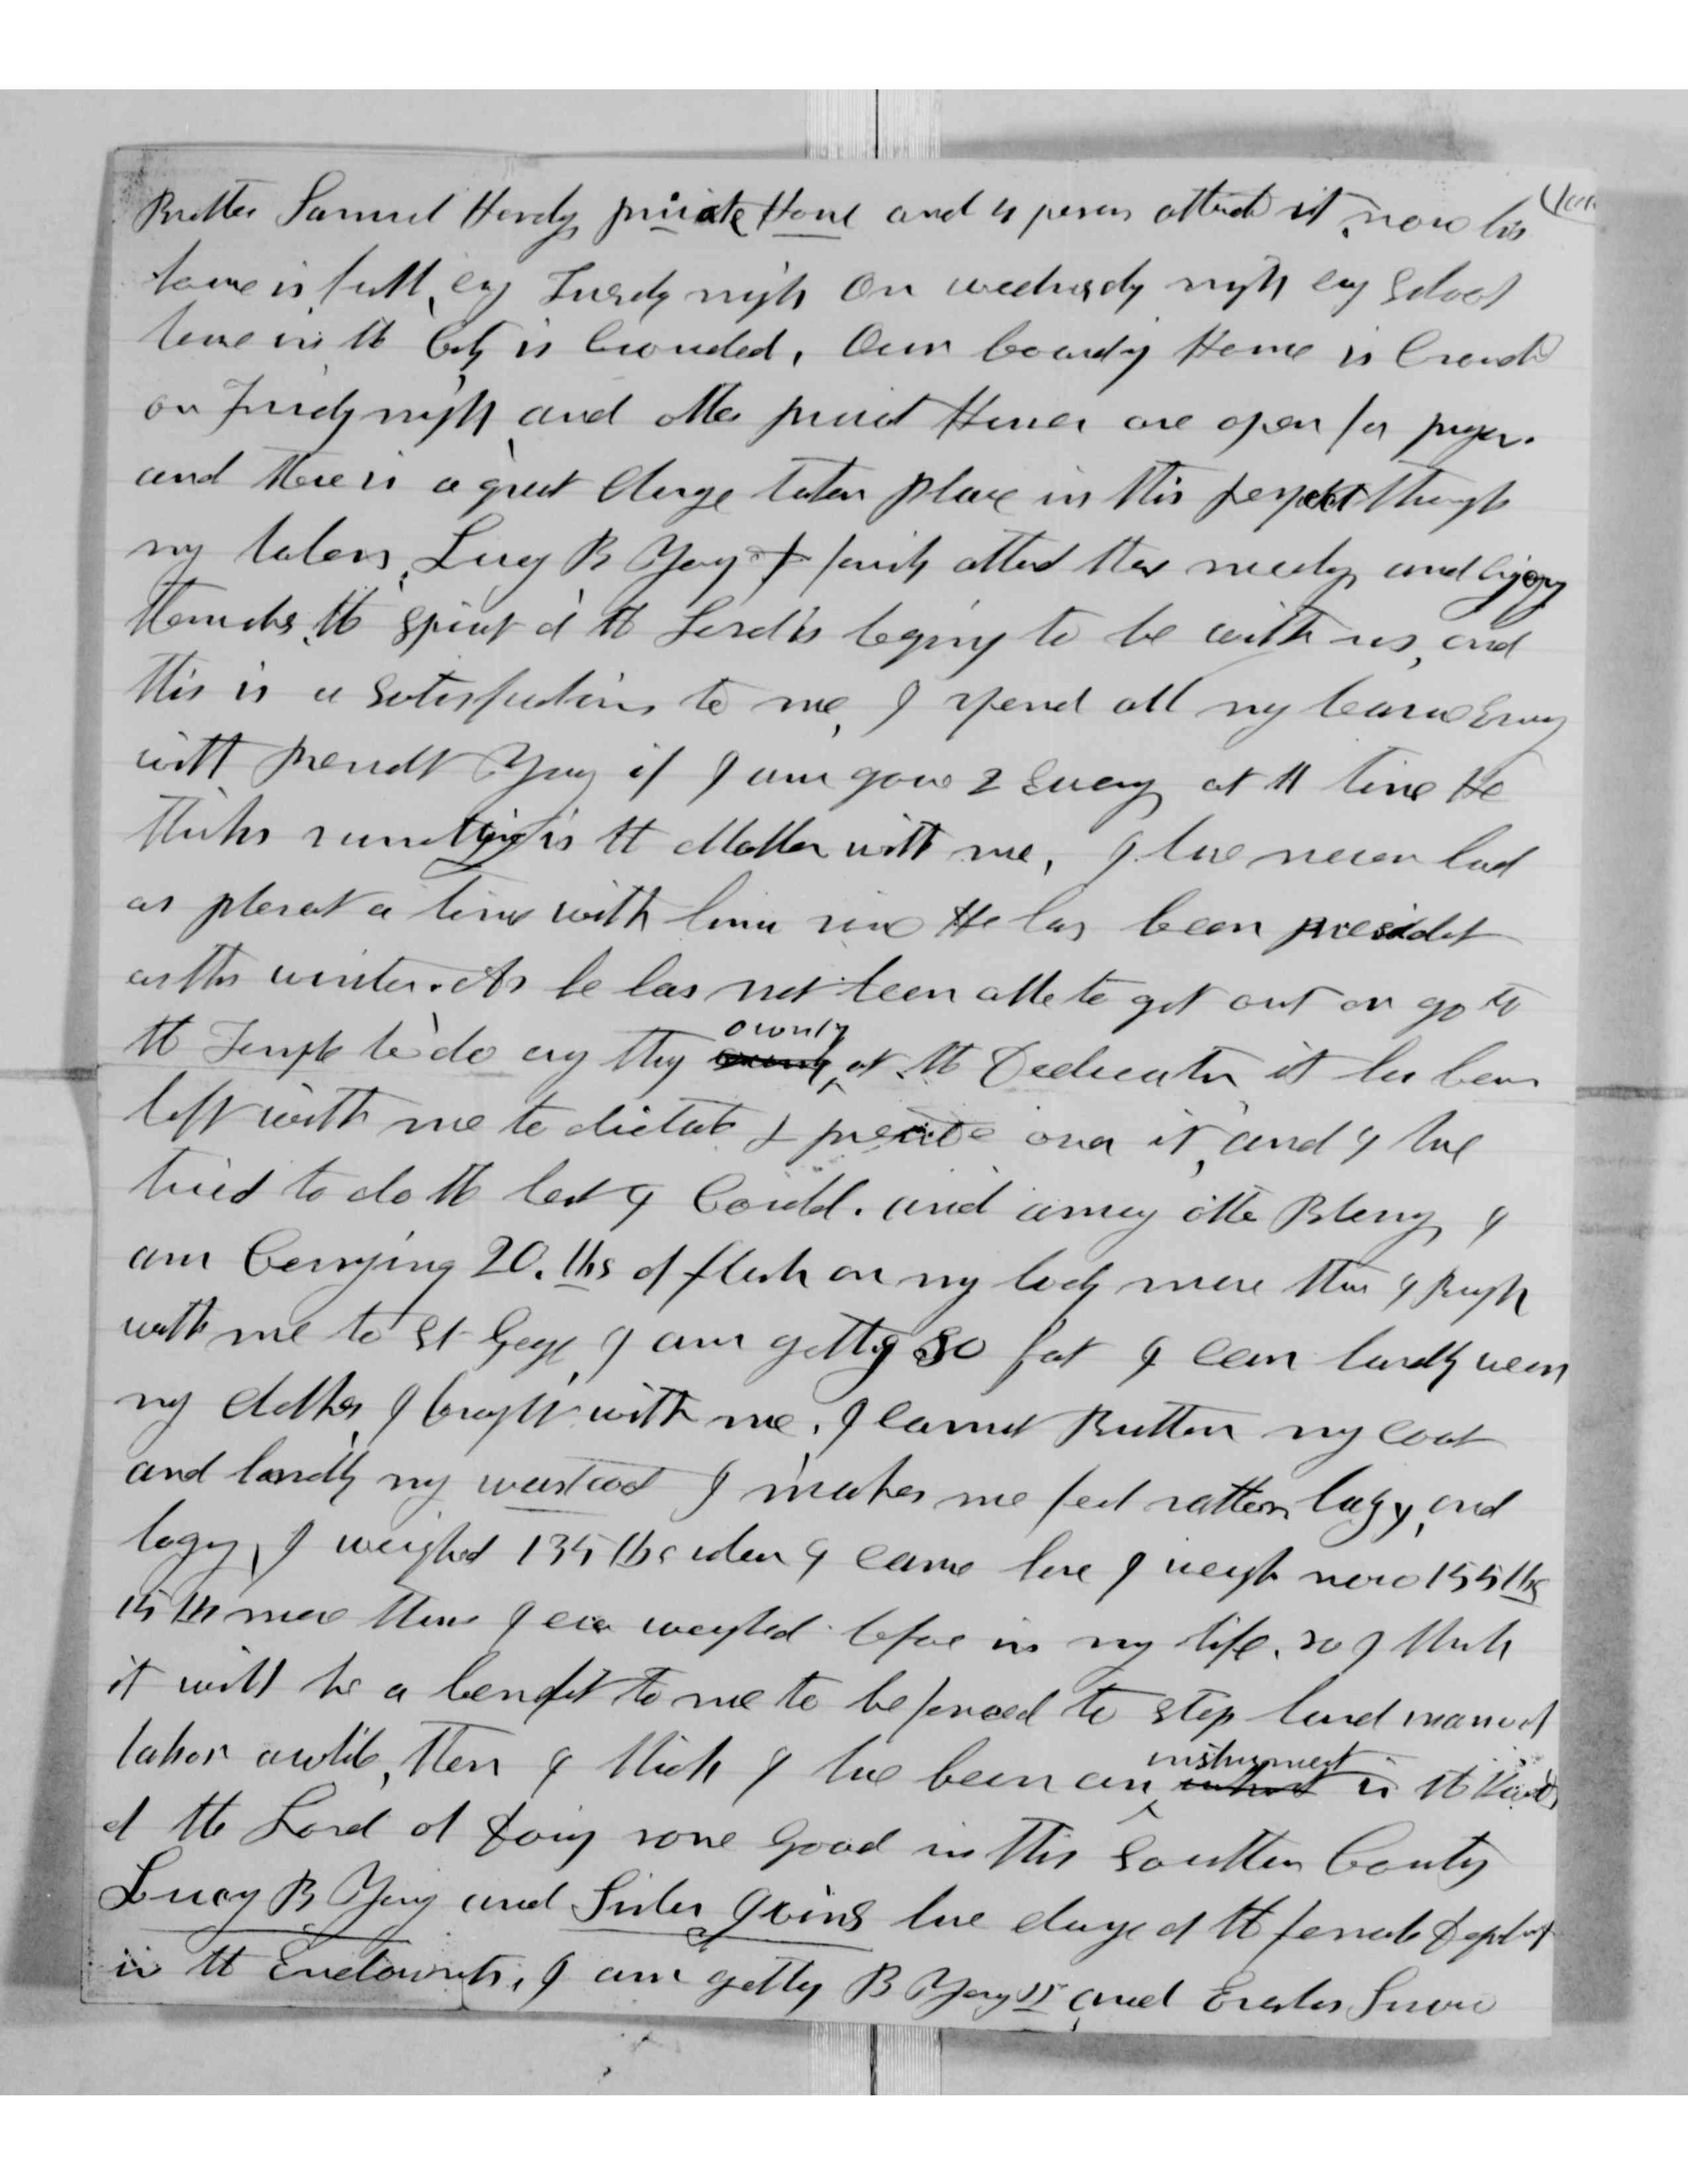 Brother Samuel Hardy private House and 4 persons attended it, now his
house is full, evry Tuesdy night On wednesdy night evry School
house in the City is Crouded, Our boarding House is Croud
on Fridy night, and other privat Houses are open for prayer.
and there is a great Change taken place in this respect through
my labors, Lucy B Young & family attend these meetings and enjoy
themselves, the spirit of the Lord is begining to be with us, and
this is a Satisfaction to me, I spend all my leasure Evnings
with Presidt Young if I am gone 2 Evenings at a time He
thinks sumething is the Matter with me, I have never had
as plesant a time with him since He has been president
as this winter. As he has not been able to get out or go to
the Temple to do any thing ownly at the Dedication it has been
left with me to dictate & preside over it, and I have
tried to do the best I Could. and among other Blessings I
am Carrying 20. lbs of flesh on my body more than I Brought
with me to St George, I am getting so fat I can hardly wear
my clothes I brought with me, I cannot Button my coat
and hardly my waistcoat I makes me feel rather lazy, and
logy, I weighed 135 lbs when I came here I weigh now 155 lbs
15 lbs more than I ever weighed before in my life. so I think
it will be a benefit to me to be forced to stop hard manuel
labor awhile, then I think I have been an instrument in the Hands
of the Lord of doing some Good in this Southern Country
Lucy B Young and Sister Ivins have charge of the female department
in the Endowments, I am getting B Young Sr and Erastus Snow